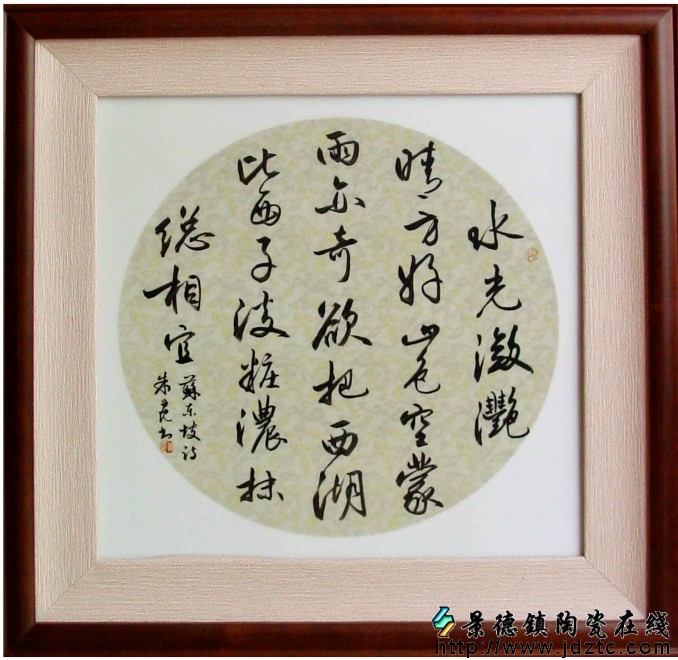 水光潋灧
晴方好山色空蒙
雨亦奇欲把西湖
比西子淡粧濃抹
總相宜
蘇東坡詩
朱昆书
景德鎮陶瓷在线
http://www.jdztc.com